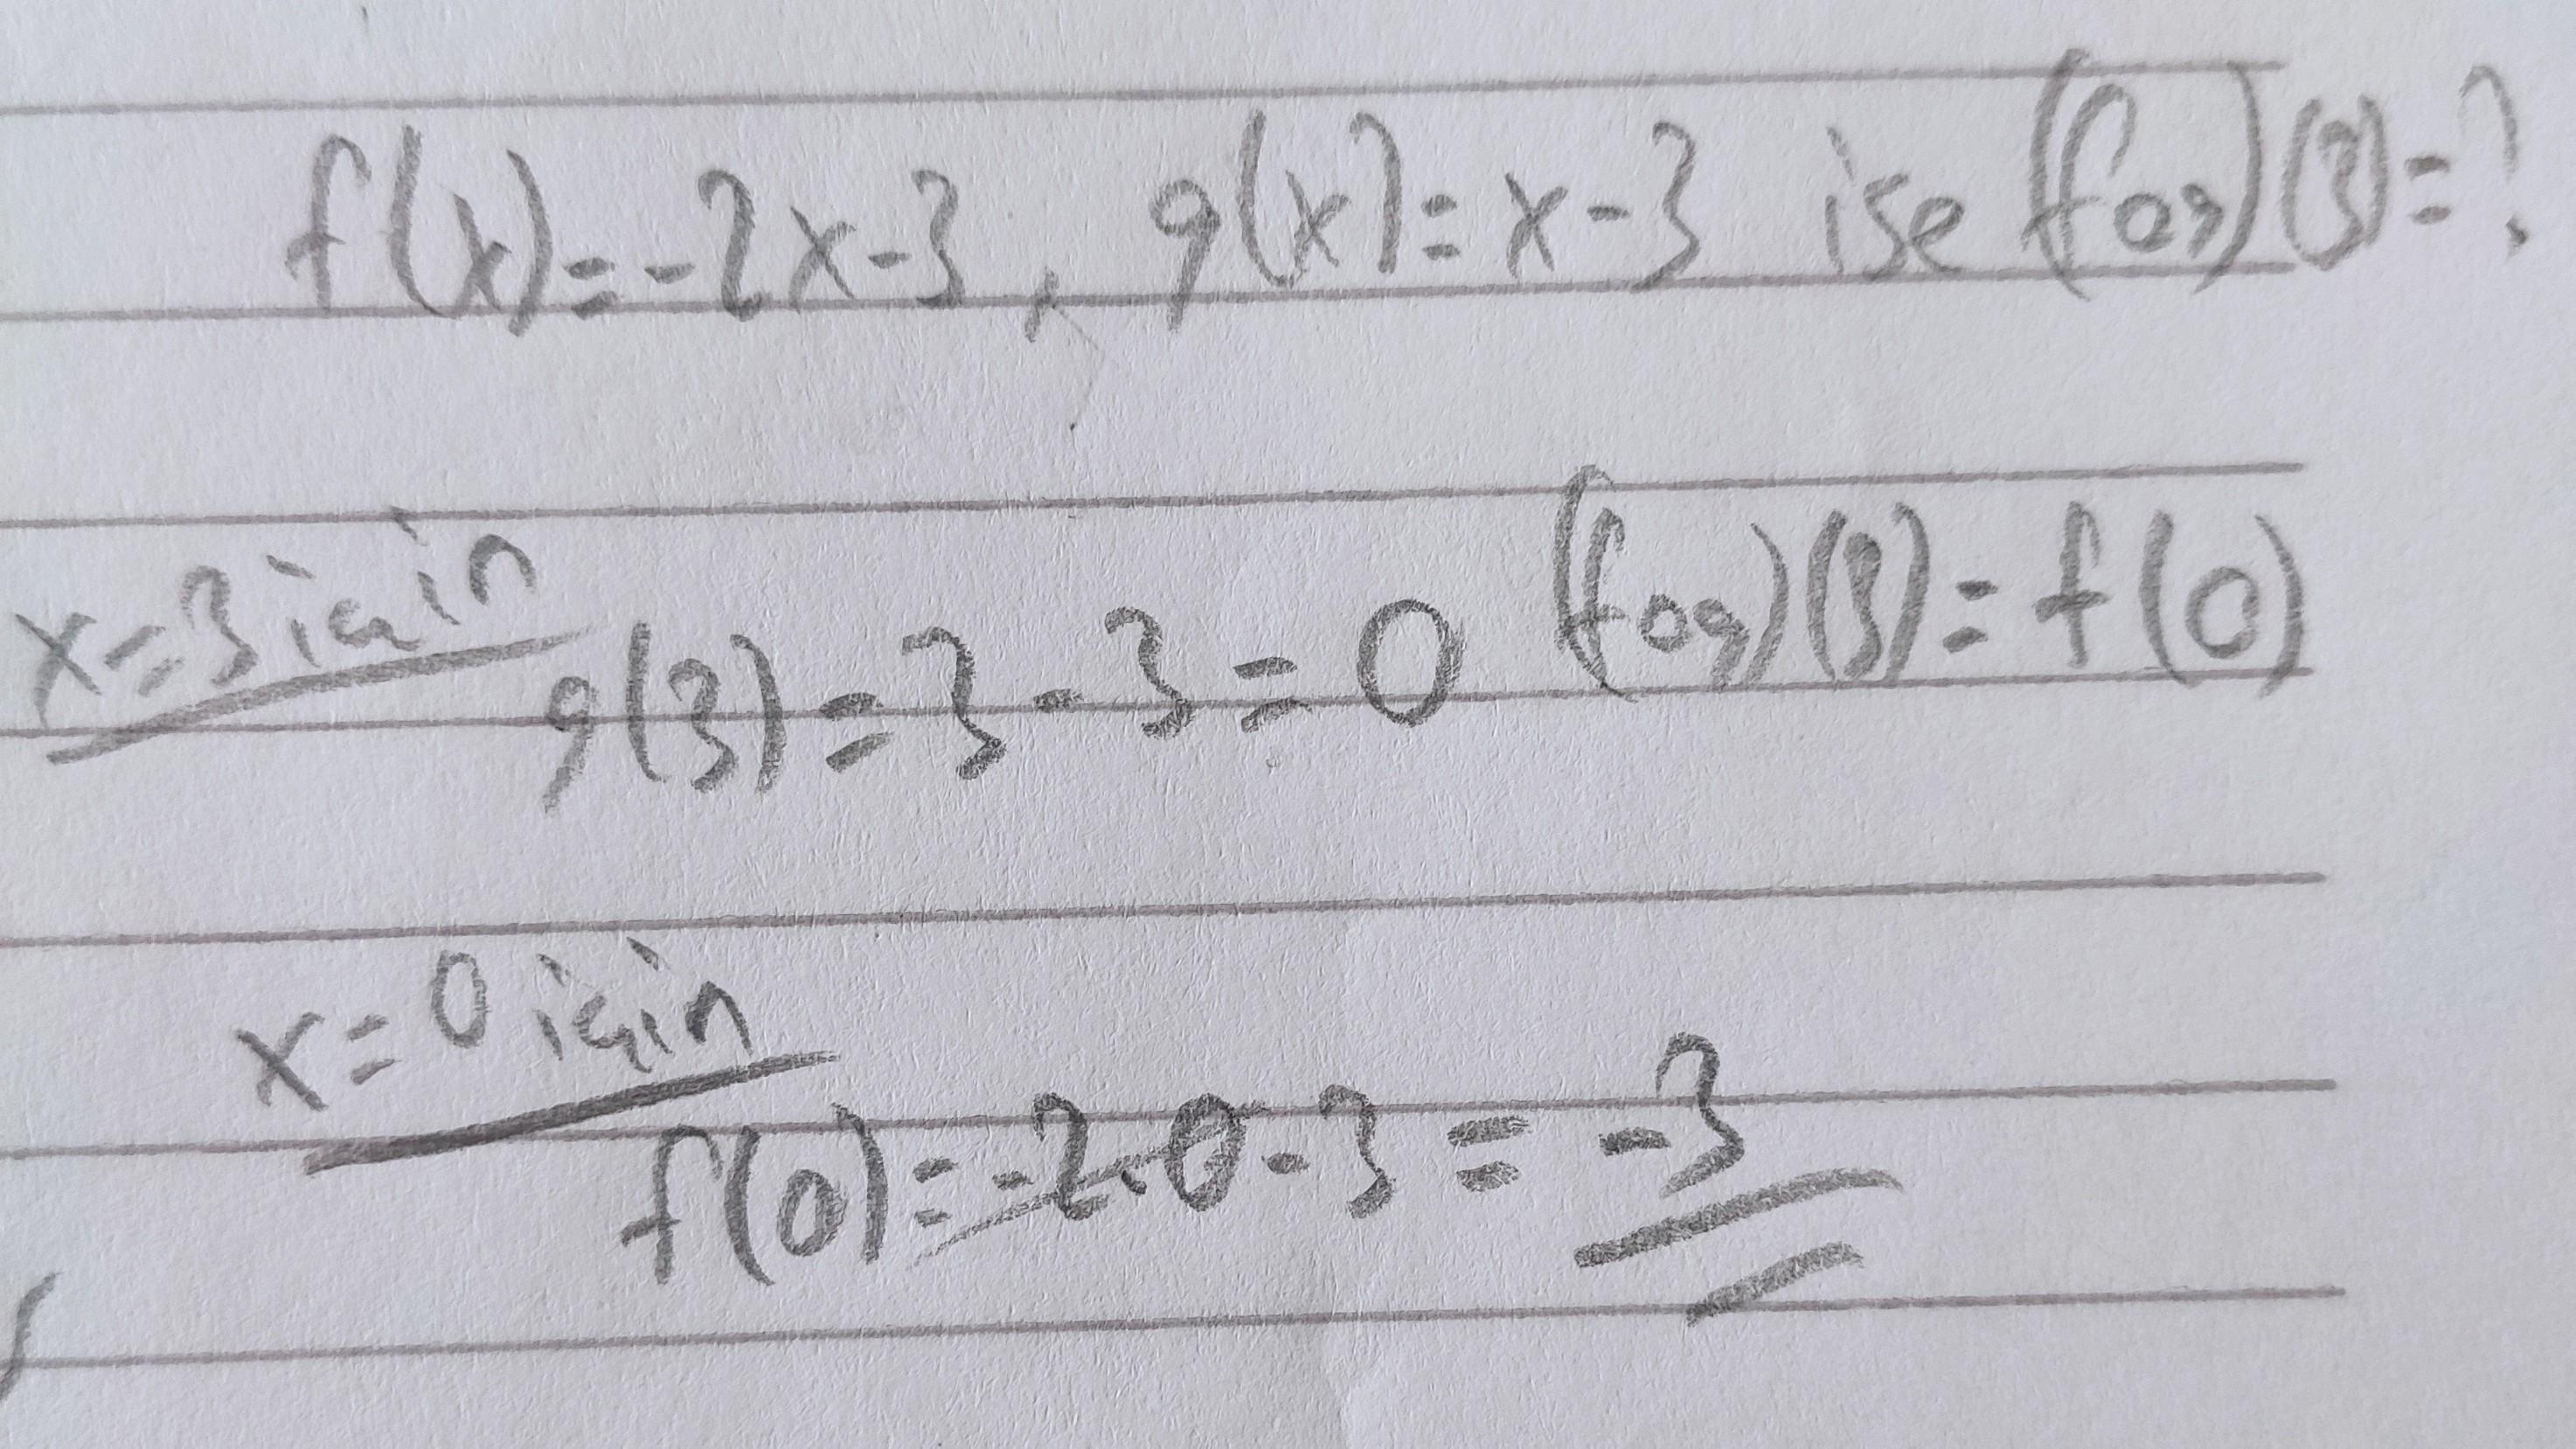 f(x)=-2x-3, g(x)=x-3 ise (fog)(3)=?
x=3 için
g(3)=3-3=0 (fog)(3)=f(0)
x=0 için
f(0)=-2.0-3=-3